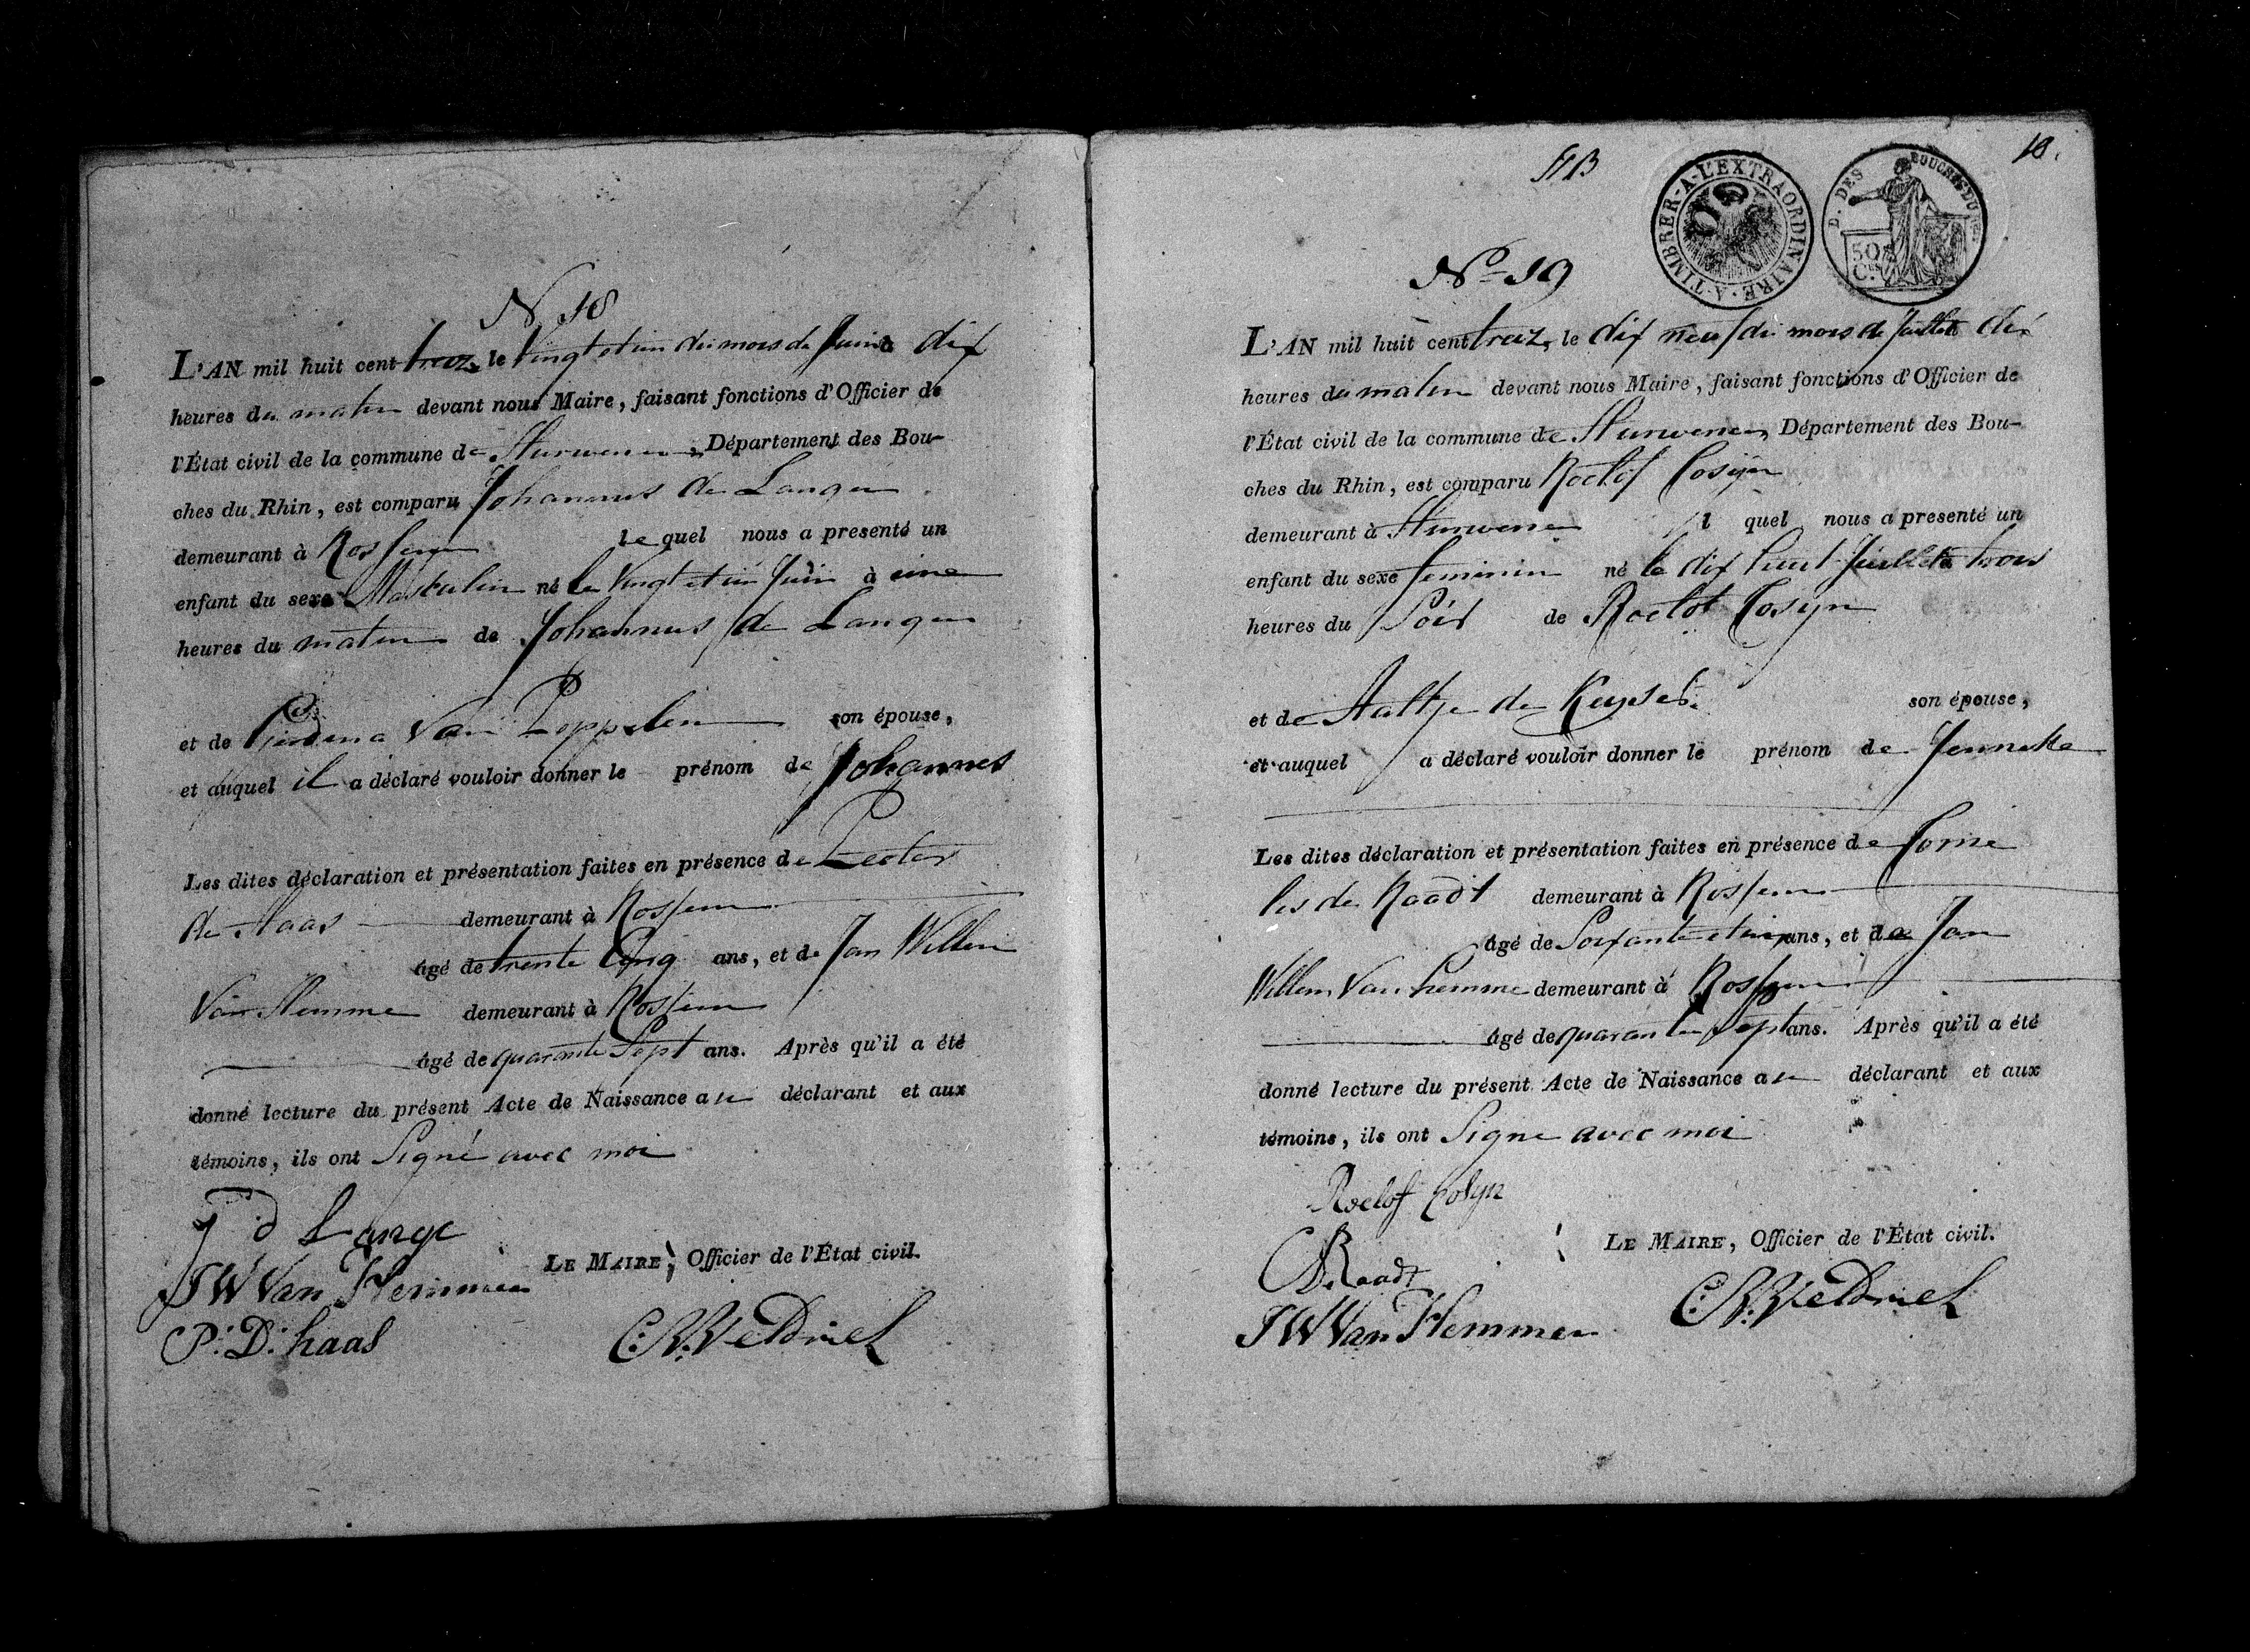 N 18
L'AN mil huit cent treize le vingt et un du mois de Juin à dix
heures du matin devant nous Maire, faisant fonctions d'Officier de
l'État civil de la commune de Hurwenen, Département des Bou-
ches du Rhin, est comparu Johannes de Lange
demeurant à Rossem le quel nous a presenté un
enfant du sexe Masculin né le Vingt et un Juin à une
heures du matin de Johannes de Lange
et de van Poppelen son épouse,
et auquel il a déclaré vouloir donner le prénom de Johannes
Les dites déclaration et présentation faites en présence de Peeter
de Haas demeurant à Rossem
âgé de trente Cinq ans, et de Jan Willem
Van Hemme demeurant à Rossem
âgé de quarante Sept ans. Après qu'il a été
donné lecture du présent Acte de Naissance au déclarant et aux
témoins, ils ont Signé avec moi
J d Lange
JW Van Hemmen
LE MAIRE, Officier de l'État civil.
P: D: haas
C: V: Veldriel
HB
18.
A-TIMBRER-A-L'EXTRAORDINAIRE
D. DES BOUCHES DU
50 C.
No 19
L'AN mil huit cent treize, le dix neuf du mois de Juillet à dix
heures du matin devant nous Maire, faisant fonctions d'Officier de
l'État civil de la commune de Hurwenen, Département des Bou-
ches du Rhin, est comparu Roelof Cosyn
demeurant à Hurwenen l quel nous a presenté un
enfant du sexe feminin né le dix huit Juillet à trois
heures du Soir de Roelof Cosyn
et de Aaltje de Keyser son épouse,
et auquel a déclaré vouloir donner le prénom de Jenneke
Les dites déclaration et présentation faites en présence de Corne
lis de Raadt demeurant à Rossem
âgé de Soixante et ans, et de Jan
Willem Van hemme demeurant à Rossem
âgé de quarante Sept ans. Après qu'il a été
donné lecture du présent Acte de Naissance au déclarant et aux
témoins, ils ont Signé avec moi
Roelof Cosyn
LE MAIRE, Officier de l'État civil.
C D Raadt
JW Van Hemmen
C: V: Veldriel